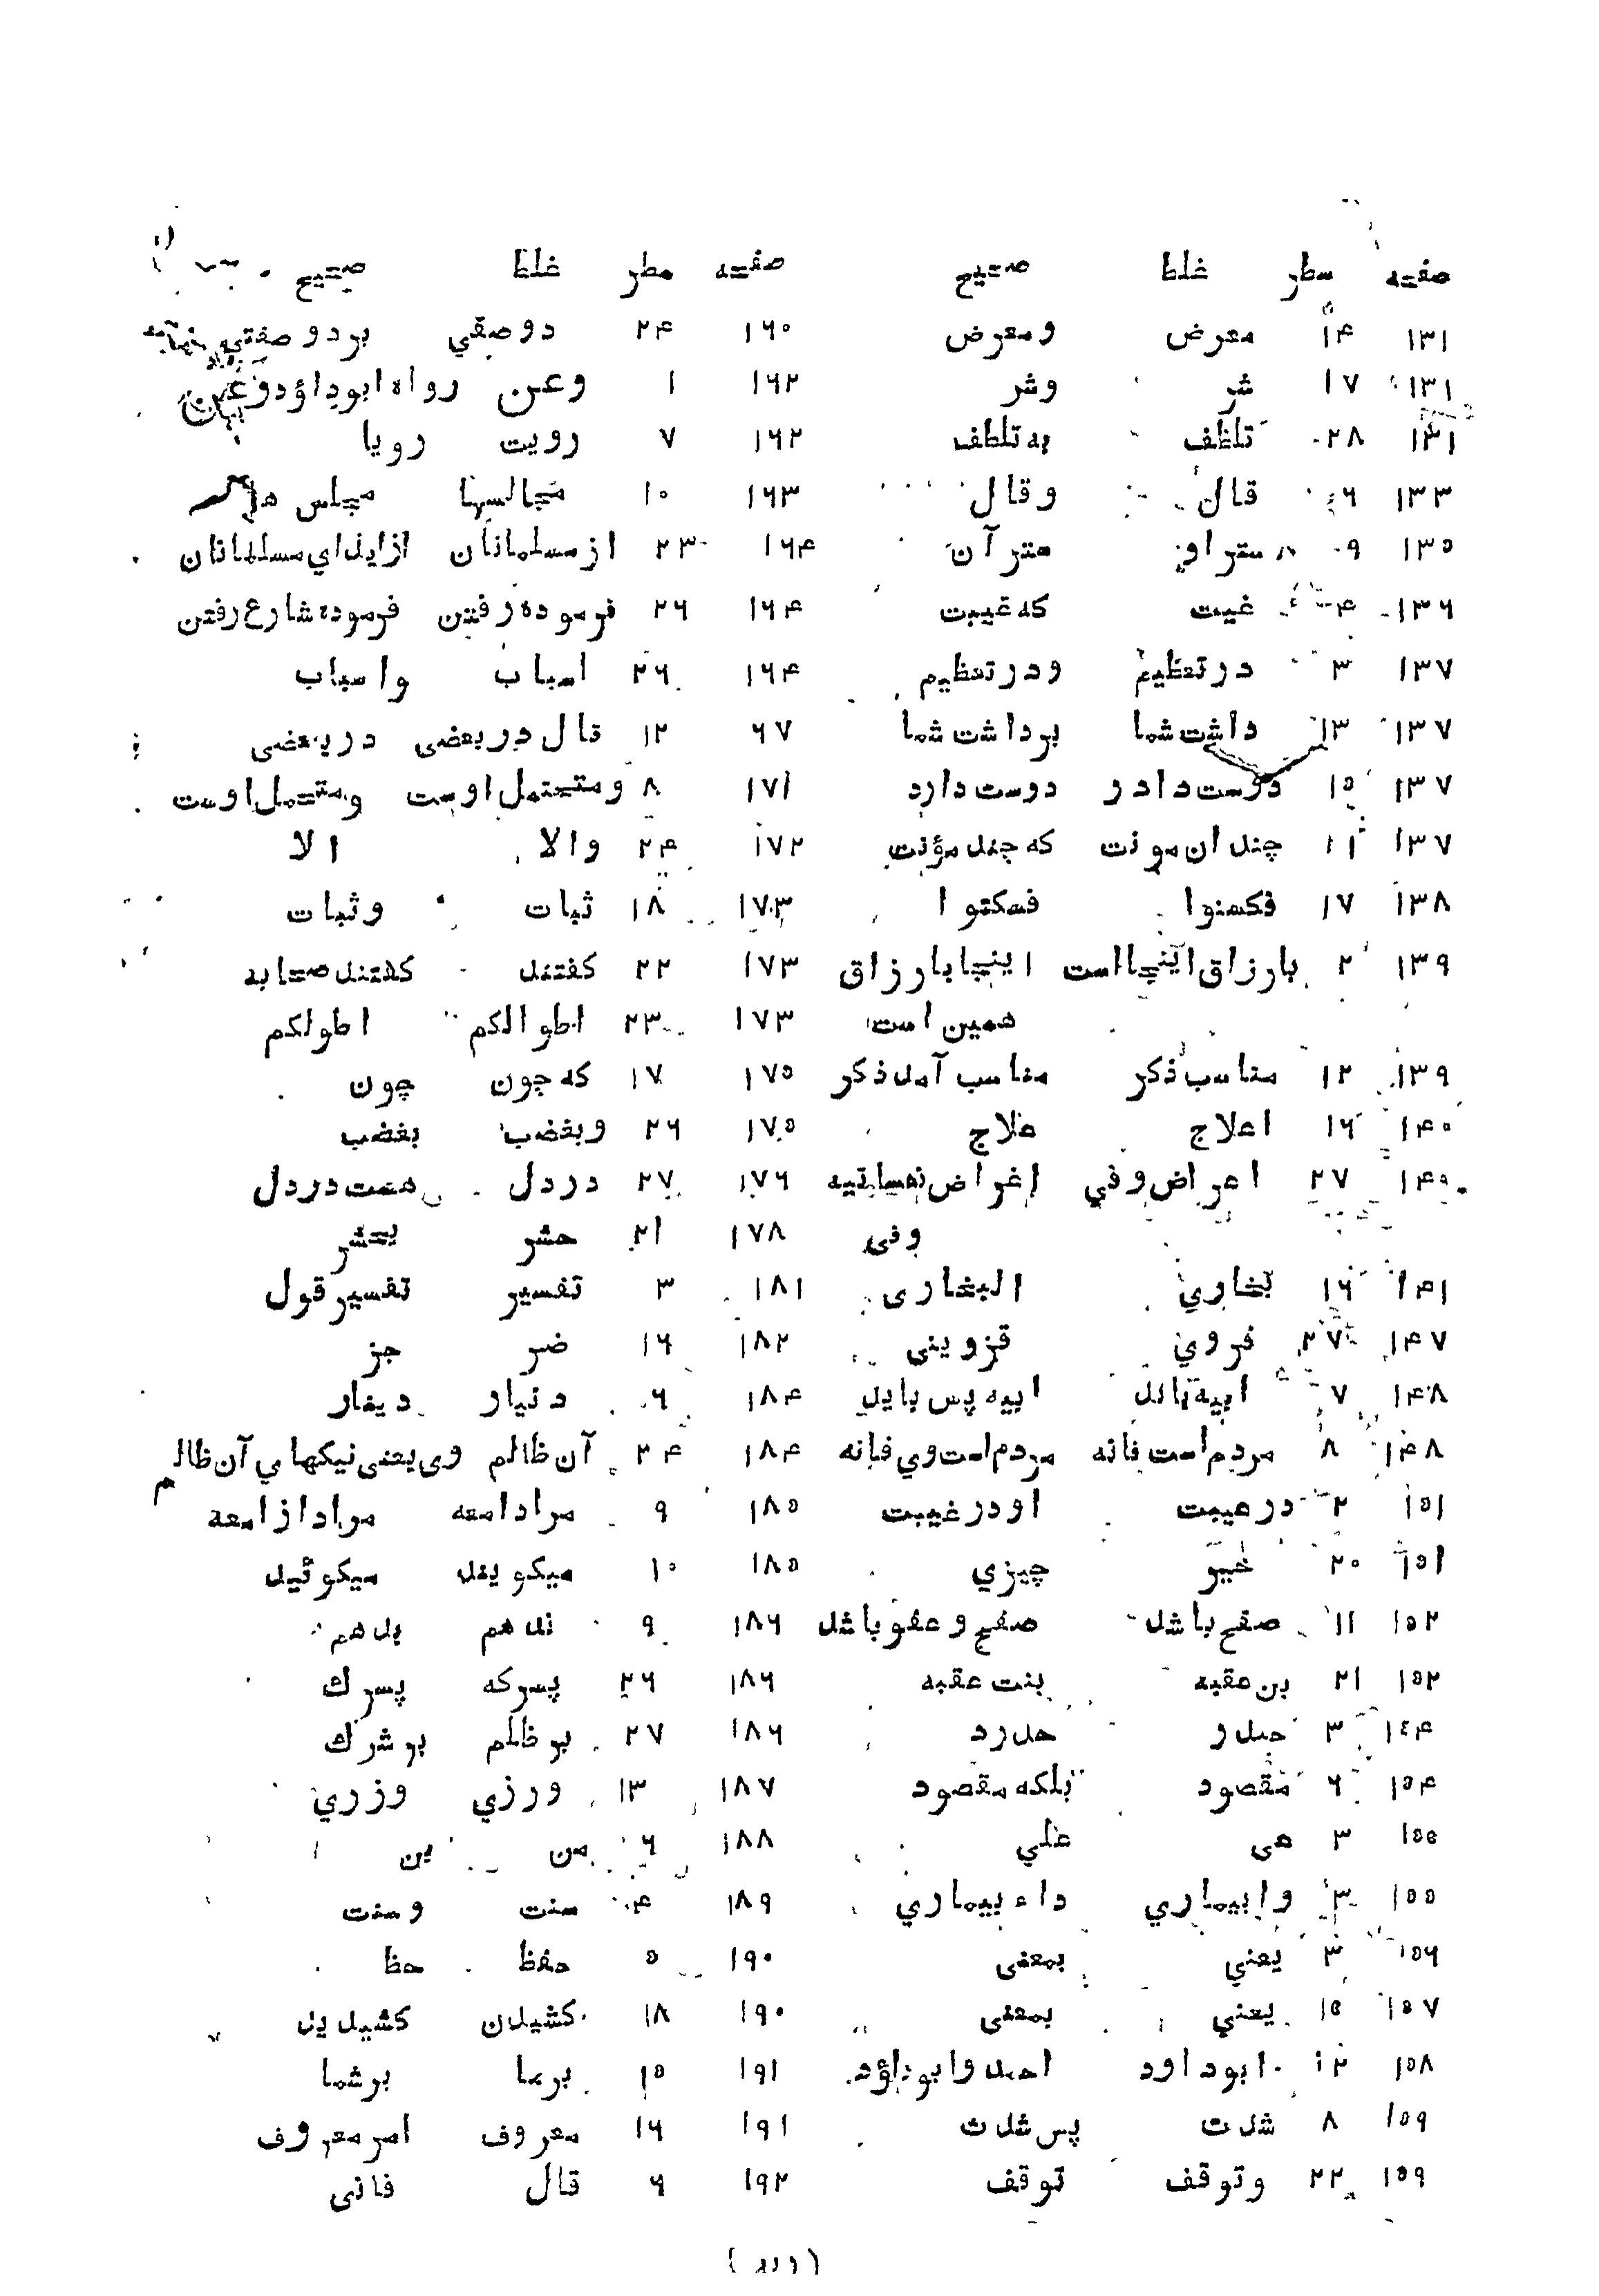 صفحه سطر غلط صحیح صفحه سطر غلط صحیح
۱۳۱ ۱۴ معرض ومعرض ۱۶۰ ۲۴ دوصفي بردو صفتي
۱۳۱ ۱۷ شر وشر ۱۶۲ ۱ وعن رواه ابوداؤد وعن
۱۳۱ ۲۸ تلطف به تلطف ۱۶۲ ۷ رویت رویا
۱۳۳ ۶ قال وقال ۱۶۳ ۱۰ مجالسها مجلس
۱۳۵ ۹ ستر او ستر آن ۱۶۴ ۲۳ از مسلمانان ازایذاي مسلمانان
۱۳۶ ۴ غیبت که غیبت ۱۶۴ ۲۶ فرموده رفتن فرموده شارع رفتن
۱۳۷ ۳ در تعظیم ودر تعظیم ۱۶۴ ۲۶ اسباب واسباب
۱۳۷ ۱۳ داشت شما برداشت شما ۶۷ ۱۲ قال در بعضی در بعضی
۱۳۷ ۱۵ دوست دادر دوست دارد ۱۷۱ ۸ ومتحتمل اوست ومتحمل اوست
۱۳۷ ۱۱ چند ان مونت که چند مؤنت ۱۷۲ ۲۴ والا الا
۱۳۸ ۱۷ فکمنوا فمکثوا ۱۷۳ ۱۸ ثبات وثبات
۱۳۹ ۲ بارزاق اینجا است اینجا بارزاق ۱۷۳ ۲۲ کفتند کفتند صحابه
همین است ۱۷۳ ۲۳ اطوالکم اطولکم
۱۳۹ ۱۲ مناسب ذکر مناسب آمد ذکر ۱۷۵ ۱۷ که جون چون
۱۴۰ ۱۶ اعلاج علاج ۱۷۵ ۲۶ وبغضب بغضب
۱۴۰ ۲۷ اعراض وفي اغراض نفسانیه ۱۷۶ ۲۷ دردل هست دردل
وفی ۱۷۸ ۲۱ حشر یحشر
۱۴۱ ۱۶ بخاري البخاری ۱۸۱ ۳ تفسیر تفسیر قول
۱۴۷ ۲۷ فروي قزوینی ۱۸۲ ۱۶ ضر جز
۱۴۸ ۷ ابیه بائد ابیه پس باید ۱۸۴ ۶ دنیار دینار
۱۴۸ ۸ مردم است فانه مردم است وي فانه ۱۸۴ ۲۴ آن ظالم وی یعنی نیکیهاي آن ظالم
۱۵۱ ۲ در عیبت او در غیبت ۱۸۵ ۹ مراد امعه مراد از امعه
۱۵۱ ۲۰ خیر چیزي ۱۸۵ ۱۰ میکویند میکوئید
۱۵۲ ۱۱ صفح باشد صفح وعفو باشد ۱۸۶ ۹ ند هم بد هم
۱۵۲ ۲۱ بن عقبه بنت عقبه ۱۸۶ ۲۶ پسرکه پسرك
۱٤۴ ۳ حیدر حدرد ۱۸۶ ۲۷ بر ظلم بر شرك
۱۵۴ ۶ مقصود بلکه مقصود ۱۸۷ ۱۳ ورزي وزري
۱۵۵ ۳ هی علي ۱۸۸ ۶ من بن
۱۵۵ ۳ وابیماري داء بیماري ۱۸۹ ۴ سنت وسنت
۱۵۶ ۳ یعني بمعنی ۱۹۰ ۵ حفظ حظ
۱۵۷ ۱۵ یعني بمعنی ۱۹۰ ۱۸ کشیدن کشیدید
۱۵۸ ۱۲ ابوداود احمد وابوداؤد ۱۹۱ ۱۵ برما برشما
۱۵۹ ۸ شدت پس شدت ۱۹۱ ۱۶ معروف امر معروف
۱۵۹ ۲۲ وتوقف توقف ۱۹۲ ۶ قال فانی